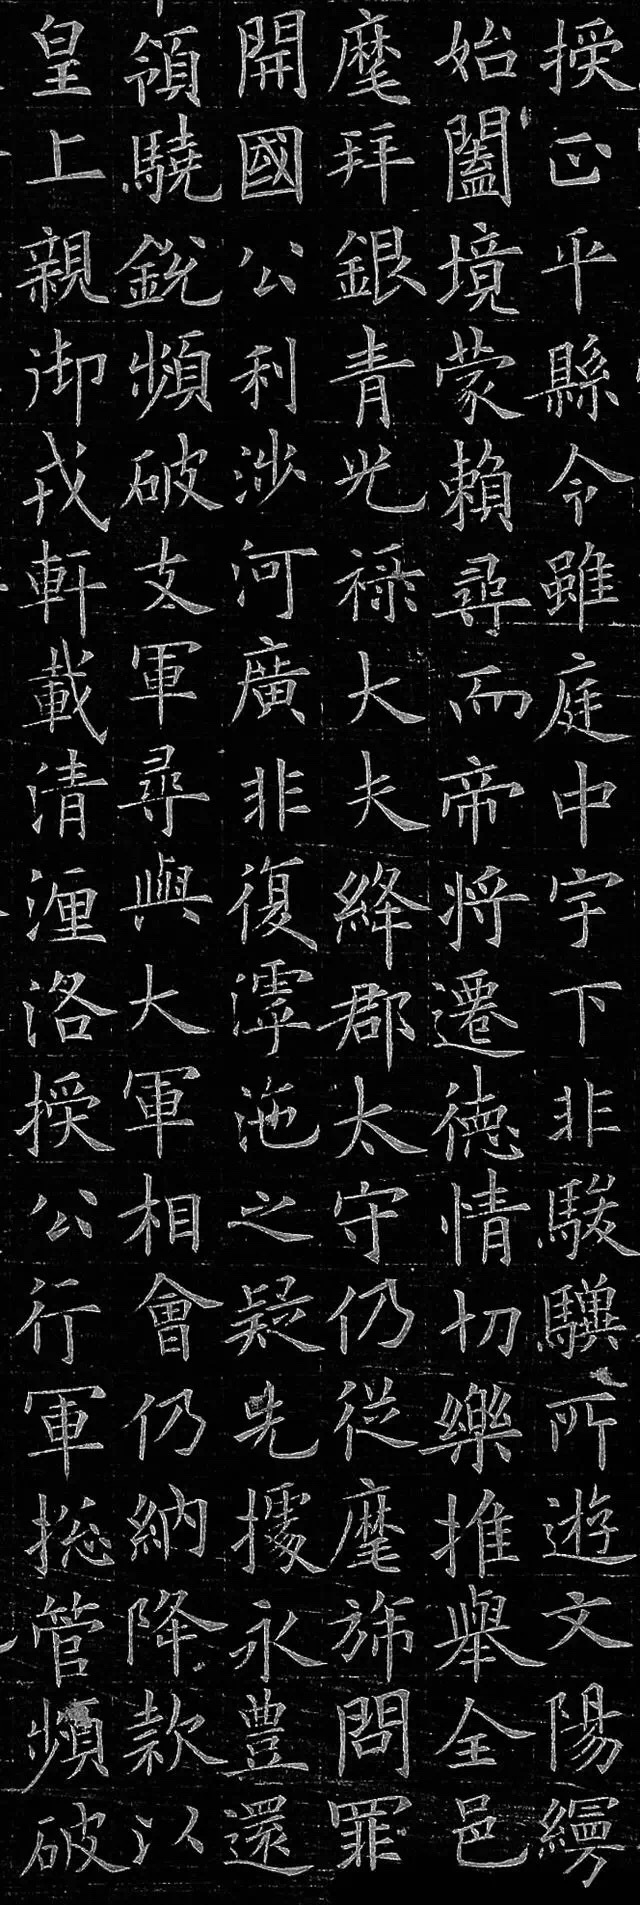 授正平縣令雖庭中宇下非駿驥所遊文陽
始闔境蒙賴尋而帝將遷德情切樂推舉全邑
麾拜銀青光祿大夫絳郡太守仍從麾旆問罪
開國公利涉河廣非復滹沲之疑先據永豊還
領驍銳頻破支軍尋與大軍相會仍納降款以
皇上親御戎軒載清瀍洛授公行軍揔管頻破